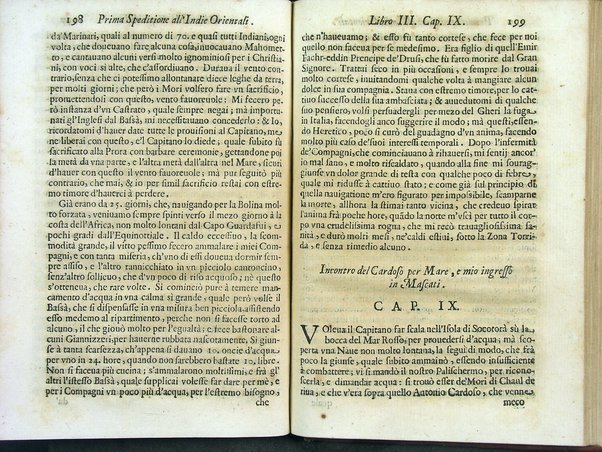 198 Prima Speditione all'Indie Orientali.
da Marinari, quali al numero di 70. e quasi tutti Indiani, ogni
volta, che doueuano fare alcuna cosa, inuocauano Mahomet-
to, e cantauano alcuni versi molto ignominiosi per i Christia-
ni, con voci sì alte, che c'assordiuano. Duraua il vento con-
trario, senza che ci potessimo allontanare dicce leghe da terra,
per molti giorni; che però i Mori volsero fare vn sacrificio,
promettendosi con questo, vento fauoreuole: Mi fecero pe-
rò instanza d'vn Castrato, quale sempre negai; mà importu-
nati gl'Inglesi dal Bassà, mi necessitauano concederlo: & io,
ricordatomi d'hauer date tutte le prouisioni al Capitano, me
ne liberai con questo, e'l Capitano lo diede, quale subito fù
sacrificato alla Prora con barbare ceremonie, gettandone poi
la metà da vna parte, e l'altra metà dall'altra nel Mare, sicuri
d'hauer con questo il vento fauoreuole; mà per questo più
contrario, che mai, & io per simil sacrificio restai con estre-
mo timore d'hauerci à perdere.
Già erano da 25. giorni, che, nauigando per la Bolina mol-
to forzata, veniuamo sempre spinti verso il mezo giorno à la
costa dell'Africa, non molto lontani dal Capo Guardafui, e
pochi gradi dall'Equinottiale. Il caldo eccessiuo, la scomo-
dità grande, il vitto pessimo fecero ammalare i miei Compa-
gni, e con tanta miseria, ch'vno di essi doueua dormir sem-
pre assiso, e l'altro rannicchiato in vn picciolo cantoncino,
senz'altro solliuo, che d'vn poco di riso acconcio, & ogni co-
sa ottenuta, che rare volte. Si cominciò pure à temere man-
camento d'acqua in vna calma sì grande, quale però volse il
Bassà, che si dispensasse in vna misura ben picciola, assistendo
esso medemo al ripartimento, perche non si facesse torto ad
alcuno, il che giouò molto per l'egualtà; e fece bastonare al-
cuni Giannizzeri, per hauerne rubbata nascostamente. Si giun-
se à tanta scarsezza, ch'appena si dauano 10. oncie d'acqua
per vno in 24. hore, quando non sarebbero bastate 10. libre.
Non si faceua più cucina; s'ammalarono moltissimi, e frà gl'
altri l'istesso Bassà, quale supplicai volesse far dare per mè, e
per i Compagni vn poco più d'acqua, per l'estremo bisogno,
che
Libro III. Cap. IX. 199
che n'haueuamo; & esso fù tanto cortese, che fece per noi
quello non faceua per se medesimo. Era figlio di quell'Emir
Fachr-eddin Prencipe de'Drusi, che fù fatto morire dal Gran
Signore. Trattai seco in più occasioni, e sempre lo trouai
molto cortese, inuitandomi qualche volta à mangiare alcun
dolce in sua compagnia. Staua con estremo timore, per lo cat-
tiuo successo della sua ambasciata; & auuedutomi di qualche
suo pensiero, volsi persuadergli per mezo del Gheri la fuga
in Italia, facendogli anco suggerire il modo; mà questi, essen-
do Heretico, poco si curò del guadagno d'vn anima, facendo
molto più caso de'suoi interessi temporali. Dopo l'infermità
de'Compagni, che cominciauano à rihauersi, mi sentij ancor'
io mal sano, e molto risfaldato, quando alla fine mi souraag-
giunse vn dolor grande di testa con qualche poco di febre,
quale mi ridusse à cattiuo stato; e come già sul principio di
quella nauigatione m'ero figurato per impossibile, scamparne
la morte, allhora la stimai tanto vicina, che credeuo spirar
l'anima frà poche hore, quãdo la notte m'vscì per tutto il cor-
po vna crudelissima rogna, che mi recò trauagliosissima sa-
nità, e durò molti mesi, ne'caldi estiui, sotto la Zona Torri-
da, e senza rimedio alcuno.
Incontro del Cardoso per Mare, e mio ingresso
in Mascati.
CAP. IX.
VOleua il Capitano far scala nell'Isola di Socotorà sù la
bocca del Mar Rosso, per prouederci d'acqua; mà sco-
perta vna Naue non molto lontana, la seguì di modo, che frà
poco la giunse, quale subito ammainò; essendo insufficiente
à combattere; vi si mandò il nostro Palischermo, per ricono-
scerla, e dimandar acqua: si trouò esser de'Mori di Chaul de
tiua, e che v'era sopra quello Antonio Cardoso, che venne
meco